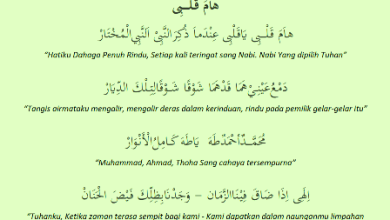 هَامَ قَلْبِى
هَامَ قَلْبِى يَاقَلْبِى عِنْدَمَا ذُكِرَ النَّبِىْ اَلنَّبِيِ الْمُخْتَارْ
“Hatiku Dahaga Penuh Rindu, Setiap kali teringat sang Nabi. Nabi Yang dipilih Tuhan”
دَمْعُ عَيْنِيْ هَمَا قَدْهَمَا شَوْقًا شَوْقًالِتِلْكَ الدِّيَارْ
“Tangis airmataku mengalir, mengalir deras dalam kerinduan, rindu pada pemilik gelar-gelar itu”
مُحَمَّدْاَحْمَدْطٰهَ يَاطٰهَ كَامِلُ الْأَنْوَارْ
“Muhammad, Ahmad, Thaha Sang cahaya tersempurna”
اِلٰهِى اِذَا ضَاقَ فِيْنَاالزَّمَان – وَجَدْنَابِظِلِّكَ فَيْضَ الْحَنَانْ
“Tuhanku, Ketika zaman terasa sempit bagi kami - Kami dapatkan dalam naunganmu limpahan